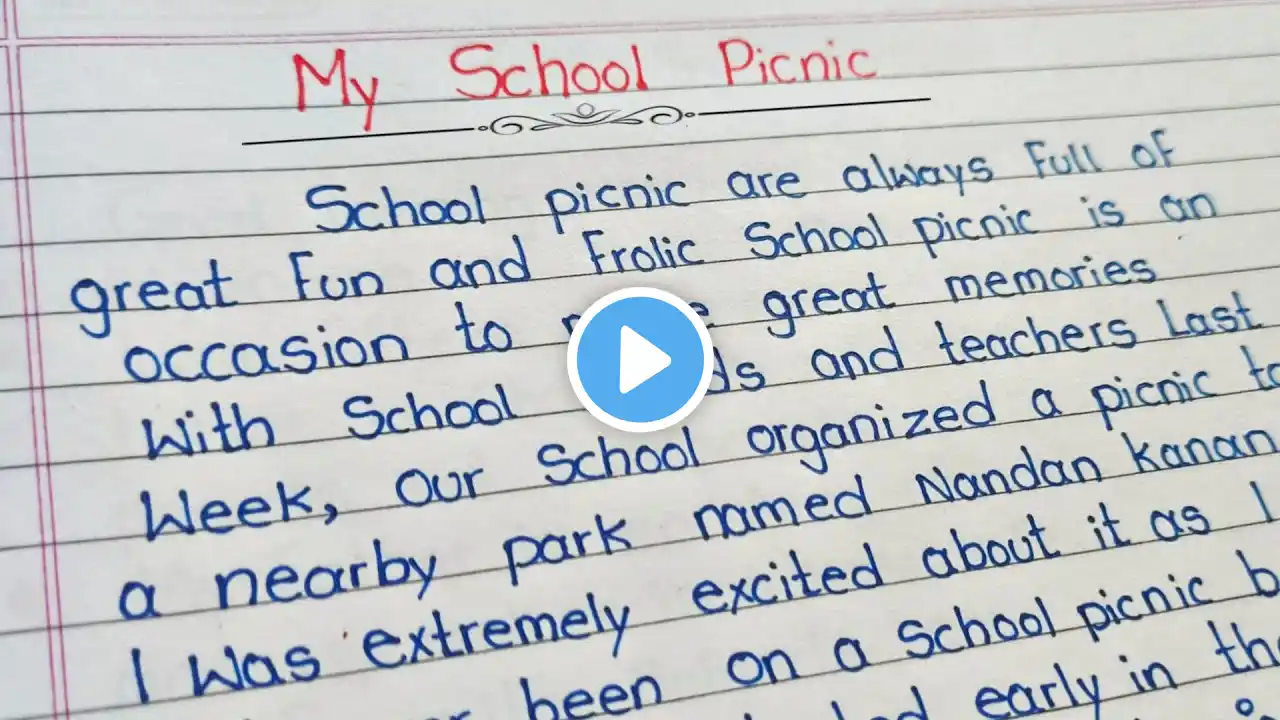 My School Picnic
School picnic are always Full of
great Fun and Frolic School picnic is an
occasion to great memories
With School and teachers Last
Week, our School organized a picnic to
a nearby park named Nandan Kanan
I was extremely excited about it as I
been on a School picnic
early in the